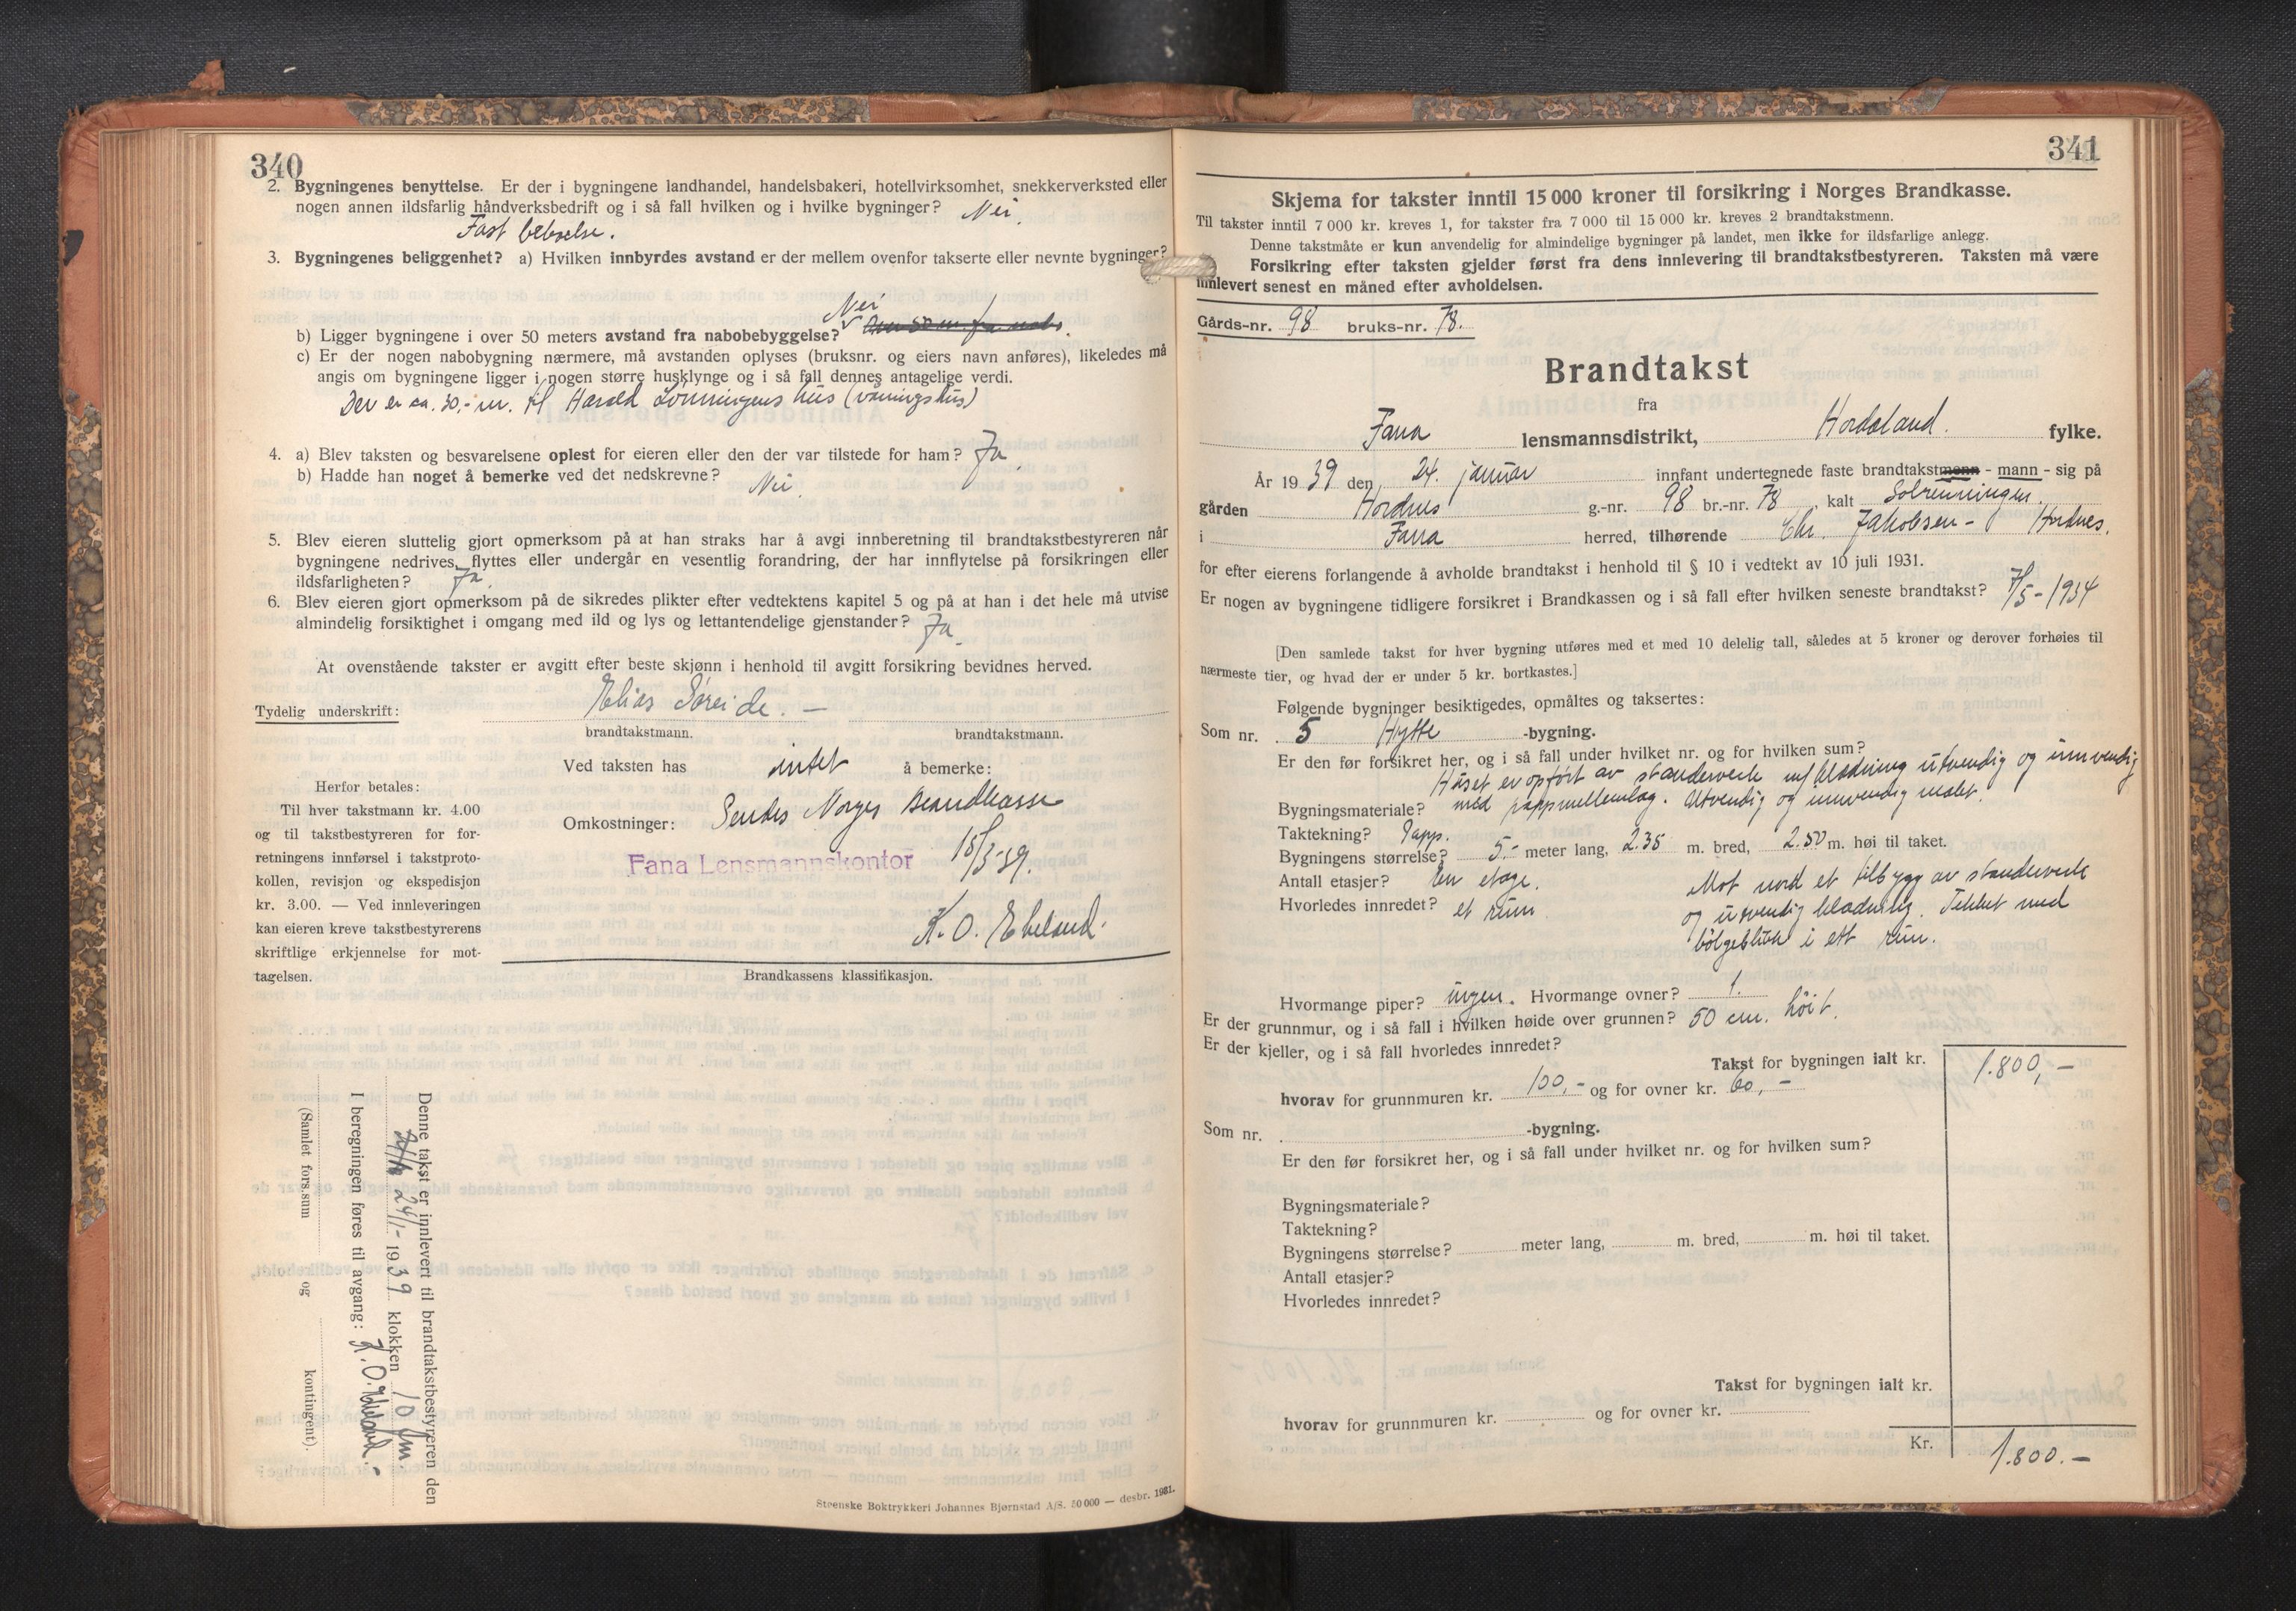 340
2. Bygningenes benyttelse. Er der i bygningene landhandel, handelsbakeri, hotellvirksomhet, snekkerverksted eller
nogen annen ildsfarlig håndverksbedrift og i så fall hvilken og i hvilke bygninger? Nei.
Fast beboelse.
3. Bygningenes beliggenhet? a) Hvilken innbyrdes avstand er der mellem ovenfor takserte eller nevnte bygninger?
Nei
b) Ligger bygningene i over 50 meters avstand fra nabobebyggelse? Over 50 m. fra nabo.
c) Er der nogen nabobygning nærmere, må avstanden oplyses (bruksnr. og eiers navn anføres), likeledes må
angis om bygningene ligger i nogen større husklynge og i så fall dennes antagelige verdi.
Der er ca. 30,- m. til Harald Lönningens hus (våningshus)
4. a) Blev taksten og besvarelsene oplest for eieren eller den der var tilstede for ham? Ja
b) Hadde han noget å bemerke ved det nedskrevne? Nei.
5. Blev eieren sluttelig gjort opmerksom på at han straks har å avgi innberetning til brandtakstbestyreren når
bygningene nedrives, flyttes eller undergår en vesentlig forandring, der har innflytelse på forsikringen eller
ildsfarligheten? Ja.
6. Blev eieren gjort opmerksom på de sikredes plikter efter vedtektens kapitel 5 og på at han i det hele må utvise
almindelig forsiktighet i omgang med ild og lys og lettantendelige gjenstander? Ja.
At ovenstående takster er avgitt efter beste skjønn i henhold til avgitt forsikring bevidnes herved.
Tydelig underskrift: Elias Søreide. —
brandtakstmann. brandtakstmann.
Ved taksten has intet å bemerke:
Omkostninger: Sendes Norges Brandkasse
Fana Lensmannskontor 15/3-39.
K. O. Ekeland.
Brandkassens klassifikasjon.
Herfor betales:
Til hver takstmann kr. 4.00
og til takstbestyreren for for-
retningens innførsel i takstproto-
kollen, revisjon og ekspedisjon
kr. 3.00. — Ved innleveringen
kan eieren kreve takstbestyrerens
skriftlige erkjennelse for mot-
tagelsen.
Denne takst er innlevert til brandtakstbestyreren den
24/1- 1939 klokken 10 fm.
I beregningen føres til avgang: K. O. Ekeland.-
(Samlet fors.sum og kontingent).
Steenske Boktrykkeri Johannes Bjørnstad A/S. 50 000 — desbr. 1931.
341
Skjema for takster inntil 15 000 kroner til forsikring i Norges Brandkasse.
Til takster inntil 7 000 kr. kreves 1, for takster fra 7 000 til 15 000 kr. kreves 2 brandtakstmenn.
Denne takstmåte er kun anvendelig for almindelige bygninger på landet, men ikke for ildsfarlige anlegg.
Forsikring efter taksten gjelder først fra dens innlevering til brandtakstbestyreren. Taksten må være
innlevert senest en måned efter avholdelsen.
Gårds-nr. 98 bruks-nr. 78.
Brandtakst
fra
Fana lensmannsdistrikt, Hordaland. fylke.
År 1939 den 24. januar innfant undertegnede faste brandtakstmenn - mann - sig på
gården Hordnes g.-nr. 98 br.-nr. 78, kalt Solrenningen.
i Fana herred, tilhørende Chr. Jakobsen - Hordnes.
for efter eierens forlangende å avholde brandtakst i henhold til § 10 i vedtekt av 10 juli 1931.
Er nogen av bygningene tidligere forsikret i Brandkassen og i så fall efter hvilken seneste brandtakst? 7/5-1934
[Den samlede takst for hver bygning utføres med et med 10 delelig tall, således at 5 kroner og derover forhøies til
nærmeste tier, og hvad der er under 5 kr. bortkastes.]
Følgende bygninger besiktigedes, opmåltes og taksertes:
Som nr. 5 Hytte -bygning.
Er den før forsikret her, og i så fall under hvilket nr. og for hvilken sum?
Huset er opfört av standerverk m/ kledning utvendig og innvendig
Bygningsmateriale? med pappmellemlag. Utvendig og innvendig malet.
Taktekning? Papp.
Bygningens størrelse? 5.- meter lang, 2.35 m. bred, 2.50 m. høi til taket.
Antall etasjer? En etage. Mot nord et tilbygg av standerverk
Hvorledes innredet? et rum og utvendig kledning. Tekket med
bölgeblikk i ett rum.
Hvormange piper? ingen. Hvormange ovner? 1.
Er der grunnmur, og i så fall i hvilken høide over grunnen? 50 cm. höit.
Er der kjeller, og i så fall hvorledes innredet?
Takst for bygningen ialt kr. 1.800,-
hvorav for grunnmuren kr. 100,- og for ovner kr. 60,-
Som nr. -bygning.
Er den før forsikret her, og i så fall under hvilket nr. og for hvilken sum?
Bygningsmateriale?
Taktekning?
Bygningens størrelse? meter lang, m. bred, m. høi til taket.
Antall etasjer?
Hvorledes innredet?
Takst for bygningen ialt kr.
hvorav for grunnmuren kr. og for ovner kr.
Kr. 1.800.-